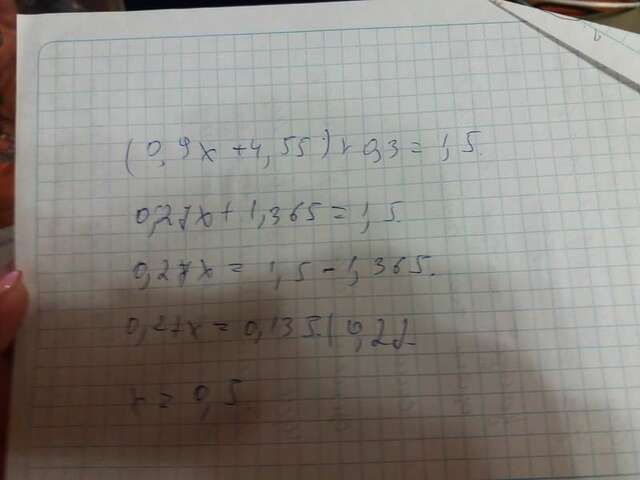 (0,9x+4,55)×0,3=1,5.
0,27x+1,365=1,5.
0,27x=1,5-1,365.
0,27x=0,135.|0,27.
x=0,5.